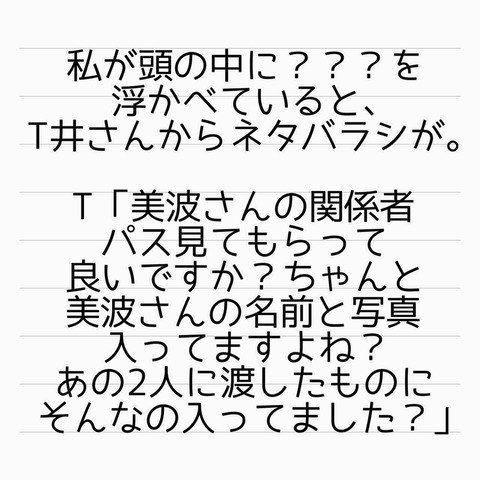 私が頭の中に？？？を
浮かべていると、
T井さんからネタバラシが。
T「美波さんの関係者
パス見てもらって
良いですか？ちゃんと
美波さんの名前と写真
入ってますよね？
あの2人に渡したものに
そんなの入ってました？」